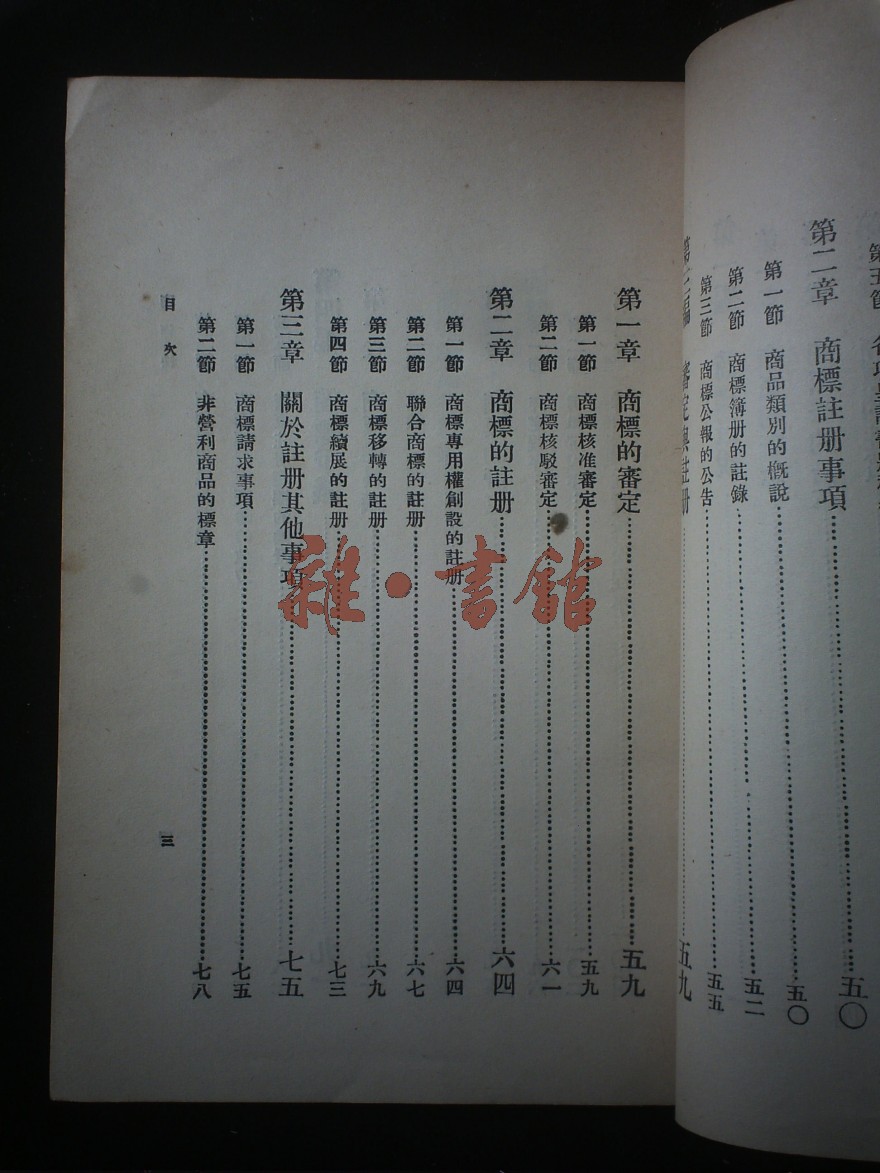 第五節
第二章 商標註册事項 五〇
第一節 商品類別的概說 五〇
第二節 商標簿册的註錄 五二
第三節 商標公報的公告 五五
審定與註册 五九
第一章 商標的審定 五九
第一節 商標核准審定 五九
第二節 商標核駁審定 六一
第二章 商標的註册 六四
第一節 商標專用權創設的註册 六四
第二節 聯合商標的註册 六七
第三節 商標移轉的註册 六九
第四節 商標續展的註册 七三
第三章 關於註册其他事項 七五
第一節 商標請求事項 七五
第二節 非營利商品的標章 七八
目次 三
雜·書館